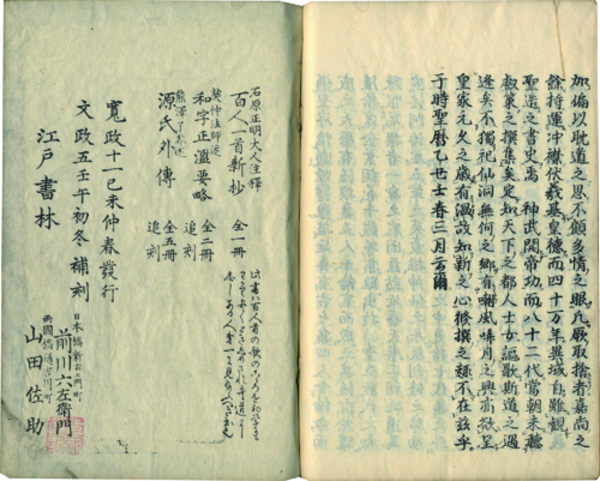 加偏以耽道之思不顧多情之眼凡厥取捨者嘉尚之
餘特運冲襟伏羲基皇德而四十万年異域自雖観
聖造之書史焉 神武開帝功而八十二代當朝未聴
叡策之撰集矣定知天下之都人士女謳歌斯道之遇
逢矣不獨記仙洞無何之郷有嘲風哢月之興亦欲呈
皇家元久之歳有温故知新之心修撰之趣不在茲乎
于時聖暦乙丑王春三月云爾
石原正明大人注釋
百人一首新抄 全一冊
契仲法師述
和字正濫要略 全二冊 追刻
熊澤了介述
源氏外傳 全五冊 追刻
寛政十一己未仲春發行
文政五壬午初冬補刻
江戸書林
前川六左衛門
山田佐助